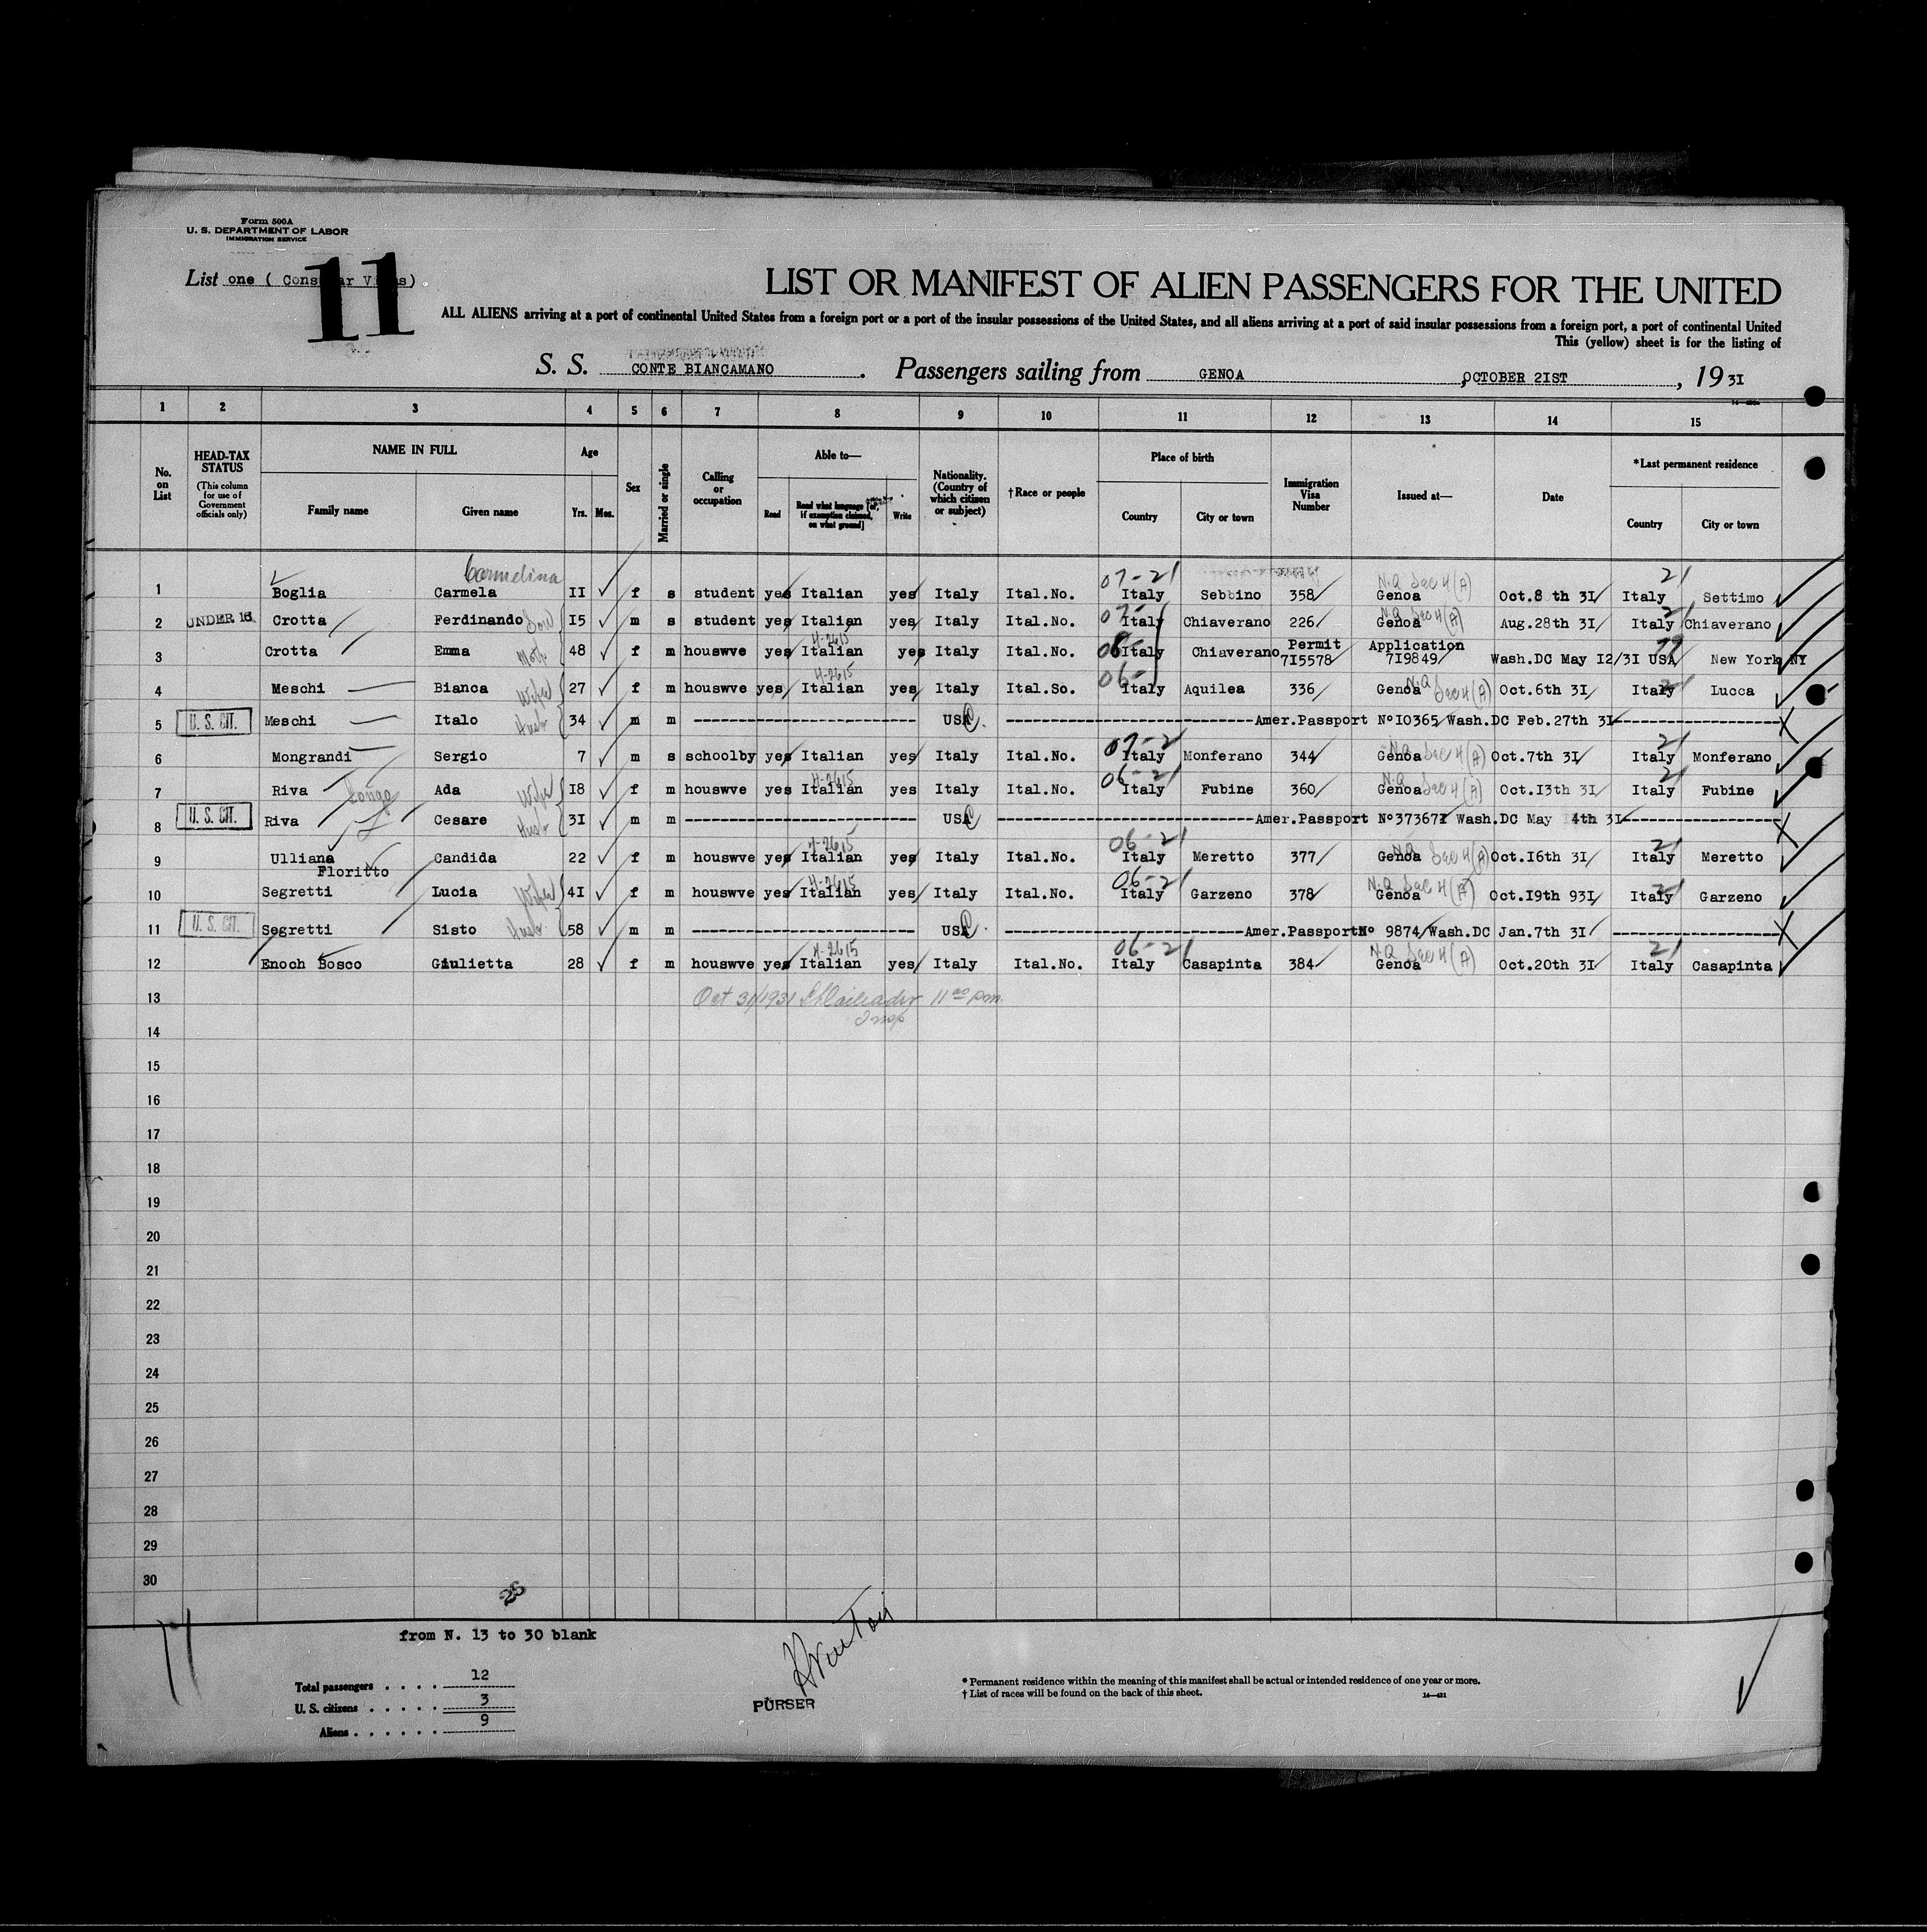 Form 500A
U. S. DEPARTMENT OF LABOR
IMMIGRATION SERVICE
11
List one (
LIST OR MANIFEST OF ALIEN PASSENGERS FOR THE UNITED
ALL ALIENS arriving at a port of continental United States from a foreign port or a port of the insular possessions of the United States, and all aliens arriving at a port of said insular possessions from a foreign port, a port of continental United
This (yellow) sheet is for the listing of
S. S. CONTE BIANCAMANO. Passengers sailing from GENOA, OCTOBER 2IST, 19 3I
1 2 3 4 5 6 7 8 9 10 11 12 13 14 15
No. on List
HEAD-TAX STATUS (This column for use of Government officials only)
NAME IN FULL
Family name
Given name
Age
Yrs. Mos.
Sex
Married or single
Calling or occupation
Able to—
Read
Read what language [or, if exemption claimed, on what ground]
Write
Nationality. (Country of which citizen or subject)
†Race or people
Place of birth
Country
City or town
Immigration Visa Number
Issued at—
Date
*Last permanent residence
Country
City or town
Carmelina
1 Boglia Carmela II f s student yes Italian yes Italy Ital.No. 07-21 Italy Sebbino 358 N.Q Sec 4(A) Genoa Oct.8 th 3I 21 Italy Settimo
2 UNDER 16 Crotta Ferdinando Son I5 m s student yes Italian yes Italy Ital.No. Italy Chiaverano 226 Genoa Aug.28th 3I Italy Chiaverano
3 Crotta Emma Moth 48 f m houswve yes Italian yes Italy Ital.No. Italy Chiaverano Permit 7I5578 Application 7I9849 Wash.DC May I2/3I USA New York NY
4 Meschi Bianca Wife 27 f m houswve yes Italian yes Italy Ital.So. Italy Aquilea 336 Genoa Sec 4(A) Oct.6th 3I Italy Lucca
5 U. S. CIT. Meschi Italo Husb 34 m m USA Amer.Passport NºI0365 Wash.DC Feb.27th 3I
6 Mongrandi Sergio 7 m s schoolby yes Italian yes Italy Ital.No. 07-21 Italy Monferano 344 Genoa Sec 4(A) Oct.7th 3I Italy Monferano
7 Riva Longo Ada Wife I8 f m houswve yes Italian yes Italy Ital.No. 06-21 Italy Fubine 360 Genoa Sec 4(A) Oct.I3th 3I Italy Fubine
8 U. S. CIT. Riva Cesare Husb 3I m m USA Amer.Passport Nº37367I Wash.DC May I4th 3I
9 Ulliana Floritto Candida 22 f m houswve yes Italian yes Italy Ital.No. 06-21 Italy Meretto 377 Genoa Sec 4(A) Oct.I6th 3I Italy Meretto
10 Segretti Lucia Wife 4I f m houswve yes Italian yes Italy Ital.No. 06-21 Italy Garzeno 378 N.Q Sec 4(A) Genoa Oct.I9th 93I Italy Garzeno
11 U. S. CIT. Segretti Sisto Husb 58 m m USA Amer.PassportNº 9874 Wash.DC Jan.7th 3I
12 Enoch Bosco Giulietta 28 f m houswve yes Italian yes Italy Ital.No. 06-21 Italy Casapinta 384 N.Q Sec 4(A) Genoa Oct.20th 3I 21 Italy Casapinta
13 Oct 31/1931 11 00 pm.
Insp
14
15
16
17
18
19
20
21
22
23
24
25
26
27
28
29
30
28
from N. 13 to 30 blank
Total passengers . . . . 12
U. S. citizens . . . . . 3
Aliens . . . . . . 9
PURSER
* Permanent residence within the meaning of this manifest shall be actual or intended residence of one year or more.
† List of races will be found on the back of this sheet.